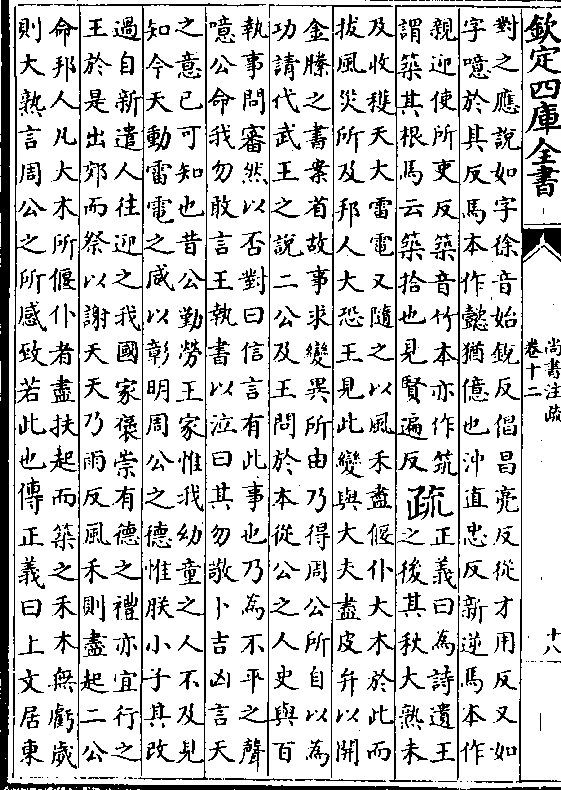 欽定四庫全書
尚書注疏
卷十二
十八
對之應說如字徐音始銳反倡昌亮反從才用反又如
字噫於其反馬本作懿猶億也沖直忠反新逆馬本作
親迎使所吏反築音竹本亦作筑
謂築其根馬云築拾也見賢遍反
疏
正義曰為詩遺王
之後其秋大熟未
及收穫天大雷電又隨之以風禾盡偃仆大木於此而
拔風災所及邦人大恐王見此變與大夫盡皮弁以開
金縢之書案省故事求變異所由乃得周公所自以為
功請代武王之說二公及王問於本從公之人史與百
執事問審然以否對曰信言有此事也乃為不平之聲
噫公命我勿敢言王執書以泣曰其勿敬卜吉凶言天
之意已可知也昔公勤勞王家惟我幼童之人不及見
知今天動雷電之威以彰明周公之德惟朕小子其改
過自新遣人往迎之我國家褒崇有德之禮亦宜行之
王於是出郊而祭以謝天天乃雨反風禾則盡起二公
命邦人凡大木所偃仆者盡扶起而築之禾木無虧歲
則大熟言周公之所感致若此也傳正義曰上文居東